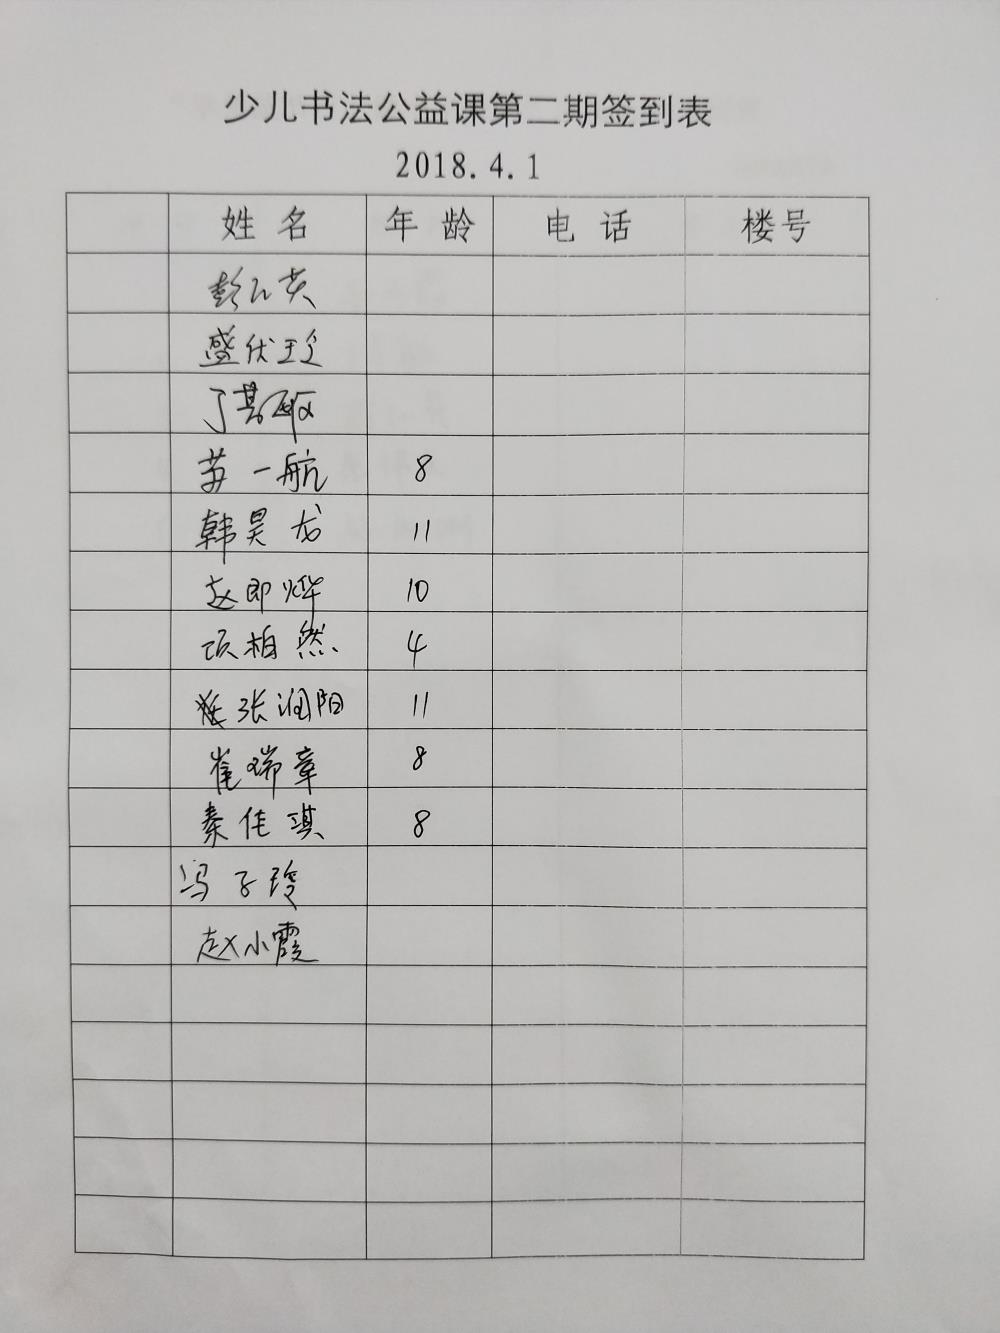 少儿书法公益课第二期签到表
2018.4.1
姓名 年龄 电话 楼号
彭
盛伏玉
丁
苏一航 8
韩昊龙 11
赵即烨 10
项柏然 4
张润阳 11
崔瑞章 8
秦佳琪 8
冯子玲
赵小霞